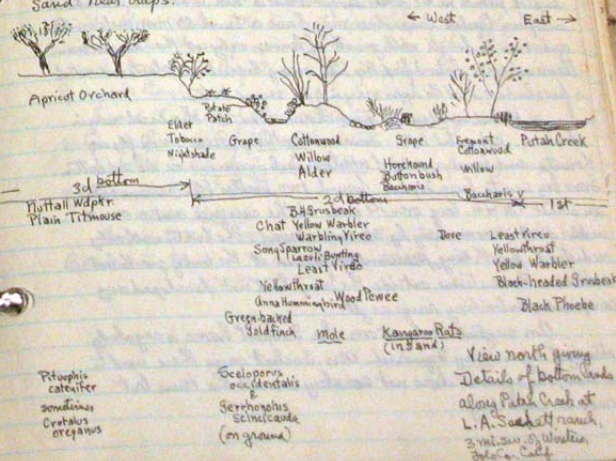 Sand near traps.
← West East →
Apricot Orchard
Potato
Patch
Elder
Tobacco
Nightshade
Grape
Cottonwood
Willow
Alder
Grape
Horehound
Buttonbush
Baccharis
Fremont
Cottonwood
Willow
Baccharis v
Putah Creek
3d bottom
2d bottom
1st
Nuttall Wdpkr
Plain Titmouse
B.H. Grosbeak
Chat Yellow Warbler
Warbling Vireo
Song Sparrow
Lazuli Bunting
Least Vireo
Yellowthroat
Anna Hummingbird
Wood Pewee
Green-backed
Goldfinch
Dove
Least Vireo
Yellowthroat
Yellow Warbler
Black-headed Grosbeak
Black Phoebe
Mole
Kangaroo Rats
(in sand)
Pituophis
catenifer
sometimes
Crotalus
oreganus
Sceloporus
occidentalis
&
Gerrhonotus
scincicauda
(on ground)
View north giving
Details of bottom lands
along Putah Creek at
L.A. Sackett ranch,
3 mi. sw. of Winters
Yolo Co. Calif.